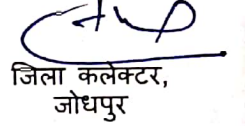 जिला कलेक्टर,
जोधपुर